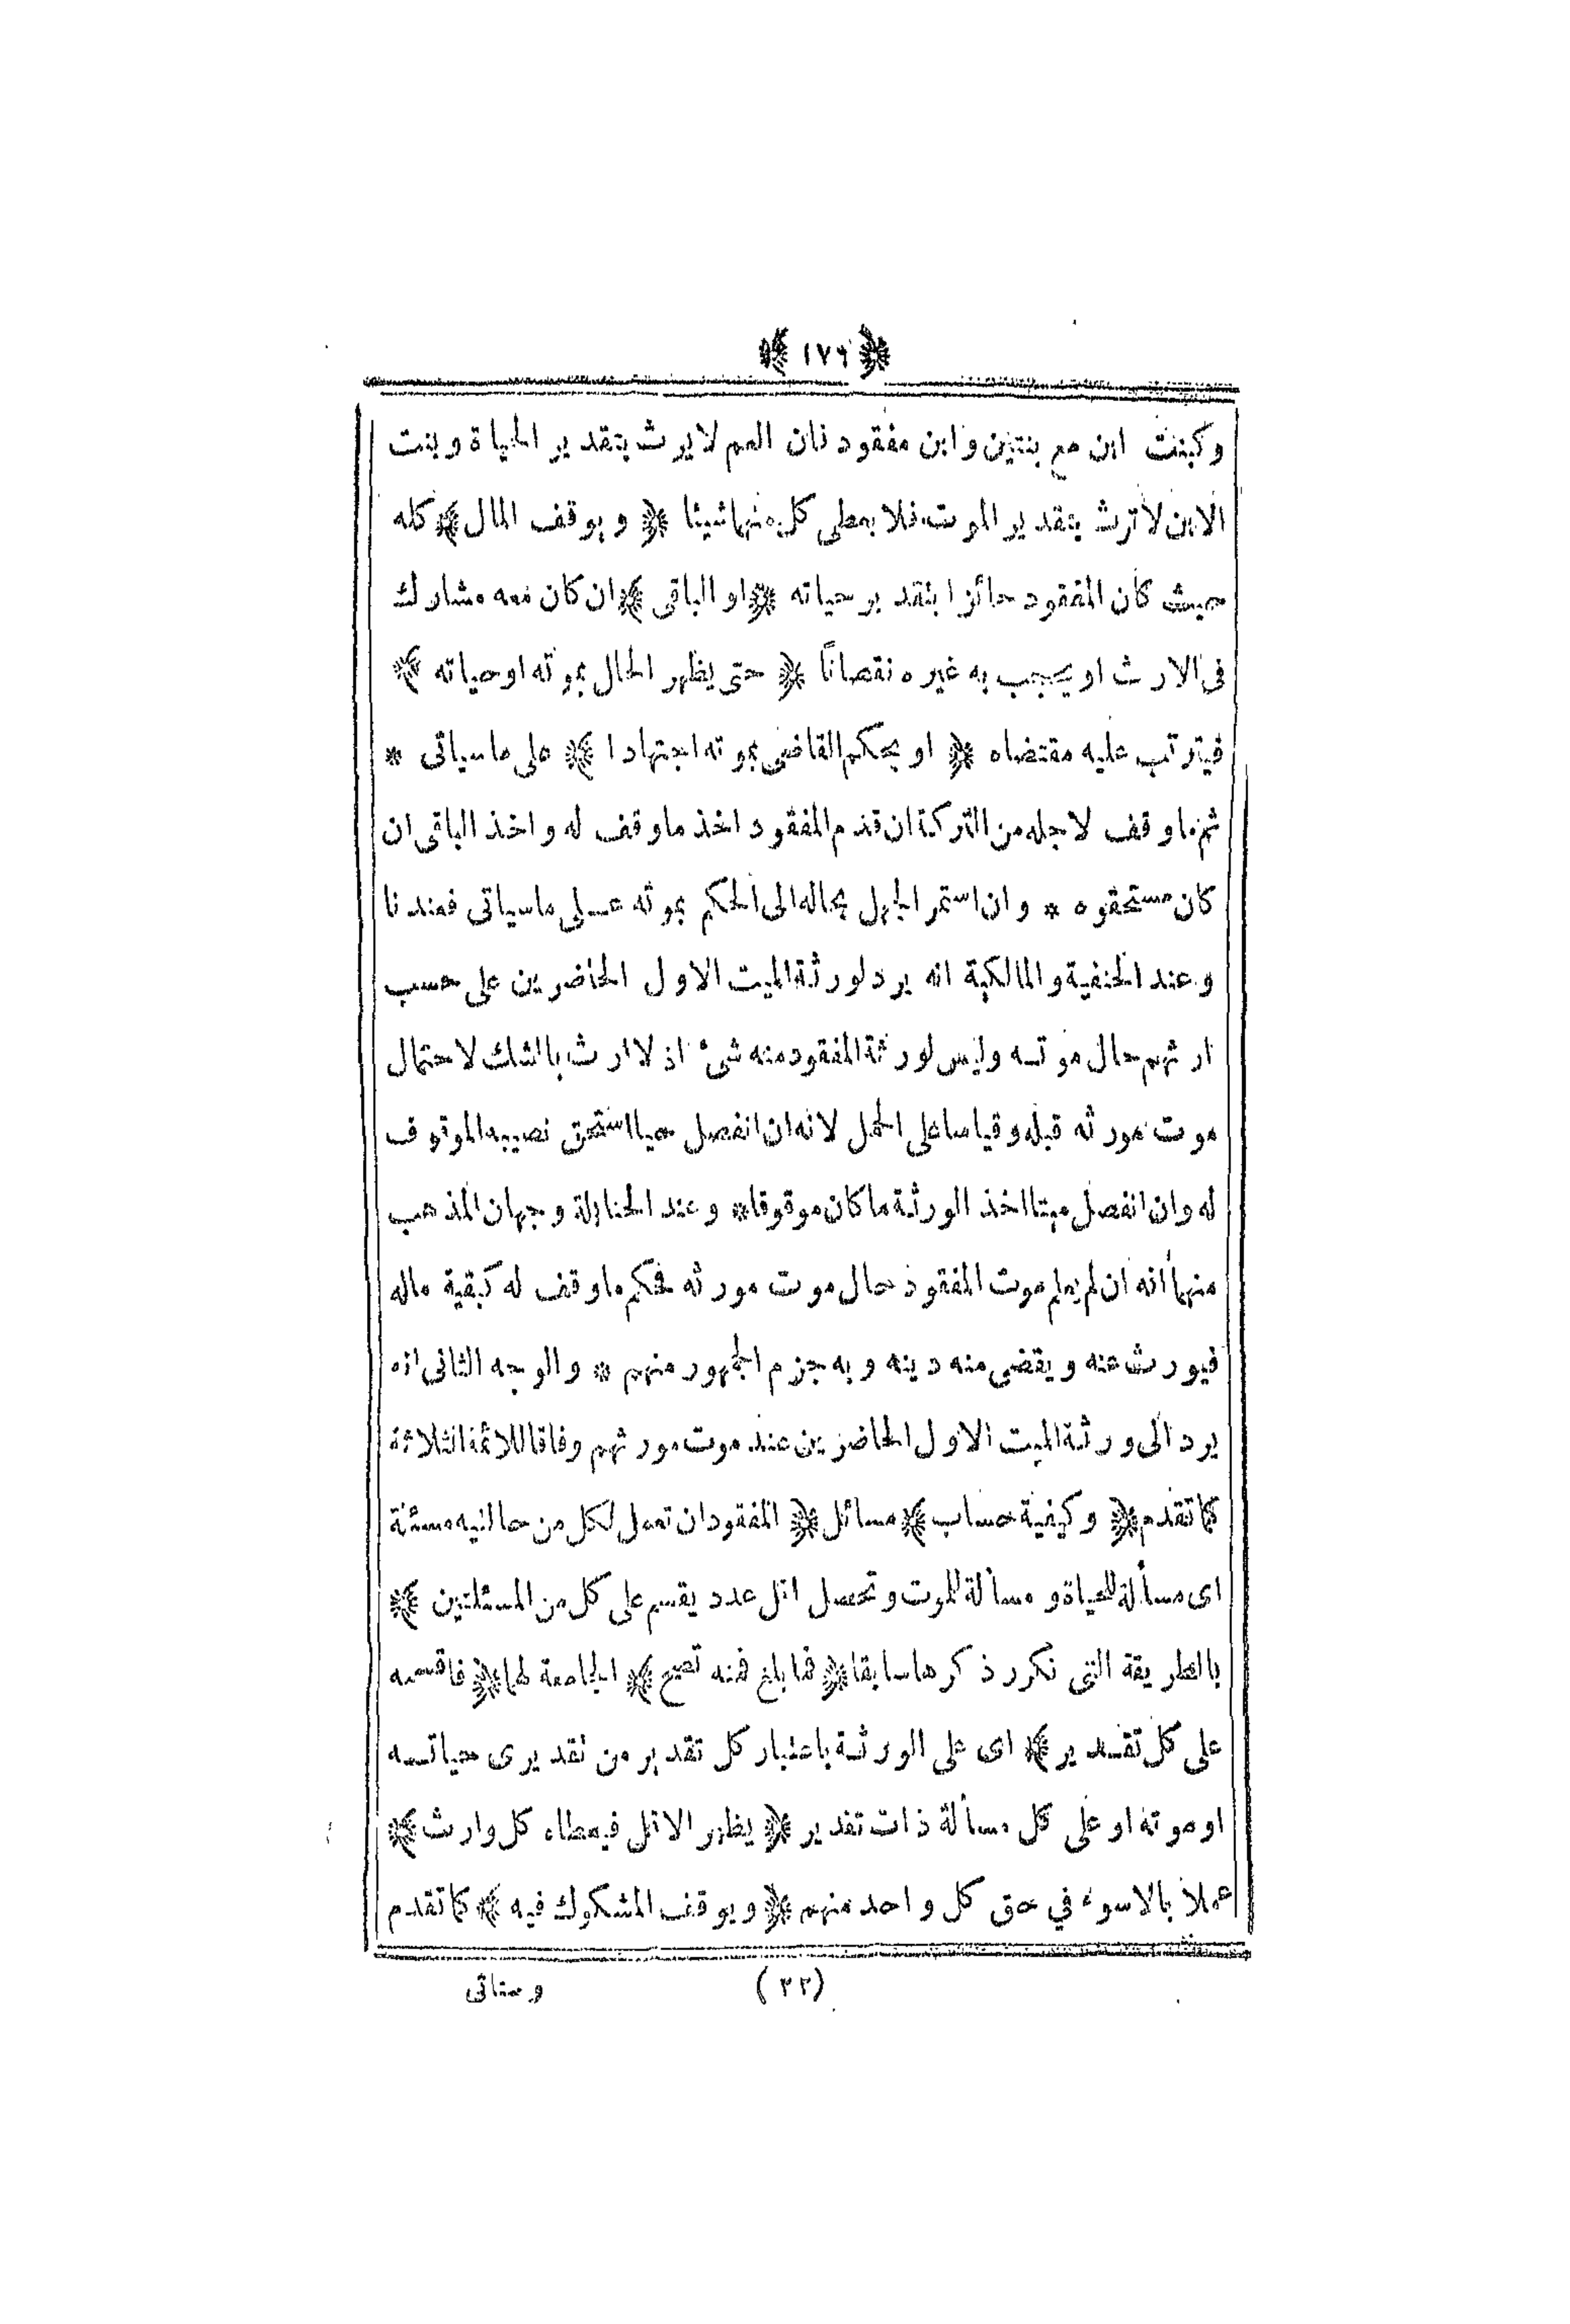 ﴿ ١٧٦ ﴾
وكبنت ابن مع بنتين وابن مفقود فان العم لا يرث بتقدير الحياة وبنت
الابن لا ترث بتقدير الموت فلا يعطى كل منهما شيئا ﴿ ويوقف المال ﴾ كله
حيث كان المفقود حائزا بتقدير حياته ﴿ او الباقى ﴾ ان كان معه مشارك
فى الارث او يحجب به غيره نقصانًا ﴿ حتى يظهر الحال بموته او حياته ﴾
فيترتب عليه مقتضاه ﴿ او يحكم القاضى بموته اجتهادا ﴾ على ماسياتى *
ثم ماوقف لاجله من التركة ان قدم المفقود اخذ ماوقف له واخذ الباقى ان
كان مستحقوه * وان استمر الجهل بحاله الى الحكم بموته عــلى ماسياتى فعندنا
وعند الحنفية والمالكية انه يرد لورثة الميت الاول الحاضرين على حسب
ارثهم حال موتــه وليس لورثة المفقود منه شئ اذ لا ارث بالشك لاحتمال
موت مورثه قبله وقياسا على الحمل لانه ان انفصل حيا استحق نصيبه الموقوف
له وان انفصل ميتا اخذ الورثة ما كان موقوفا * وعند الحنابلة وجهان المذهب
منهما انه ان لم يعلم موت المفقود حال موت مورثه فحكم ماوقف له كبقية ماله
فيورث عنه ويقضى منه دينه وبه جزم الجمهور منهم * والوجه الثانى انه
يرد الى ورثة الميت الاول الحاضرين عند موت مورثهم وفاقا للائمة الثلاثة
كما تقدم ﴿ وكيفية حساب ﴾ مسائل ﴿ المفقود ان تعمل لكل من حالتيه مسئلة
اى مسألة للحياة ومسألة للموت وتحصل اقل عدد يقسم على كل من المسئلتين ﴾
بالطريقة التى تكرر ذكرها سابقا ﴿ فما بلغ فمنه تصح ﴾ الجامعة لهما ﴿ فاقسمه
على كل تقــدير ﴾ اى على الورثــة باعتبار كل تقدير من تقديرى حياتــه
او موته او على كل مسألة ذات تقدير ﴿ يظهر الاقل فيعطاه كل وارث ﴾
عملا بالاسوء في حق كل واحد منهم ﴿ ويوقف المشكوك فيه ﴾ كما تقدم
(٢٢)
وستاتى